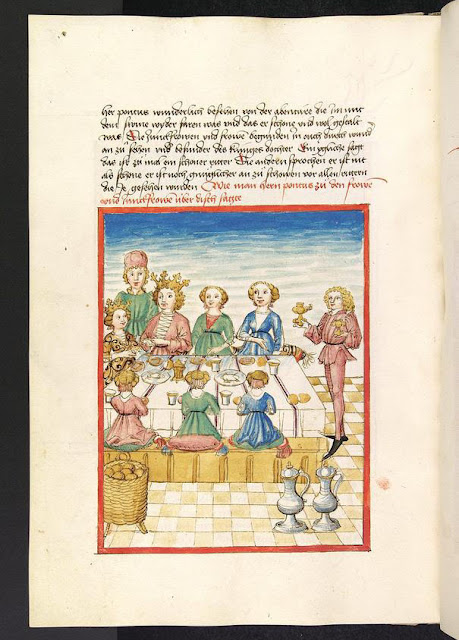 her pontus wunderlich besehen von der abenture die im mit
dem wyder faren was vnd das er schone vnd wol gestalt
was Die Junckfrowen vnd frowe begunden in ouch durch
an zu sehen vnd besunder des kuniges dochter Ein ygliche sagt
das ist zu mal ein schoner ritter Die andern sprochen er ist nit
als schone er ist noch an zu schowen vor allen rittern
die Je gesehen wurden Wie man hern pontus zu den frowe
vnd Junckfrowe uber disch satzte